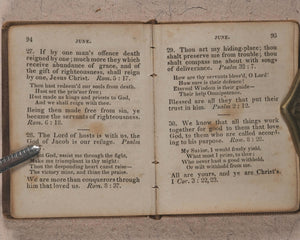 94
JUNE.
27. If by one man's offence death
reigned by one; much more they which
receive abundance of grace, and of
the gift of righteousness, shall reign
by one, Jesus Christ. Rom. 5 : 17.
Thou hast redeem'd our souls from death,
Hast set the pris'ner free;
Hast made us kings and priests to God,
And we shall reign with thee.
Being then made free from sin, ye
became the servants of righteousness.
Rom. 6 : 18.
28. The Lord of hosts is with us, the
God of Jacob is our refuge. Psalm
God, assist me through the fight,
Make me triumphant in thy might;
Thou the desponding heart canst raise—
The victory mine, and thine the praise.
We are more than conquerors through
him that loved us. Rom. 8 : 37.
JUNE.
95
29. Thou art my hiding-place; thou
shalt preserve me from trouble; thou
shalt compass me about with songs
of deliverance. Psalm 32 : 7.
How are thy servants bless'd, O Lord!
How sure is their defence!
Eternal Wisdom is their guide—
Their help Omnipotence.
Blessed are all they that put their
trust in him. Psalm 2 : 12.
30. We know that all things work
together for good to them that love
God, to them who are called accord-
ing to his purpose. Rom. 8 : 28.
My Saviour, I would freely yield
What most I prize, to thee;
Who never hast a good withheld,
Or wilt withhold from me.
All are yours, and ye are Christ's.
1 Cor. 3 : 22, 23.